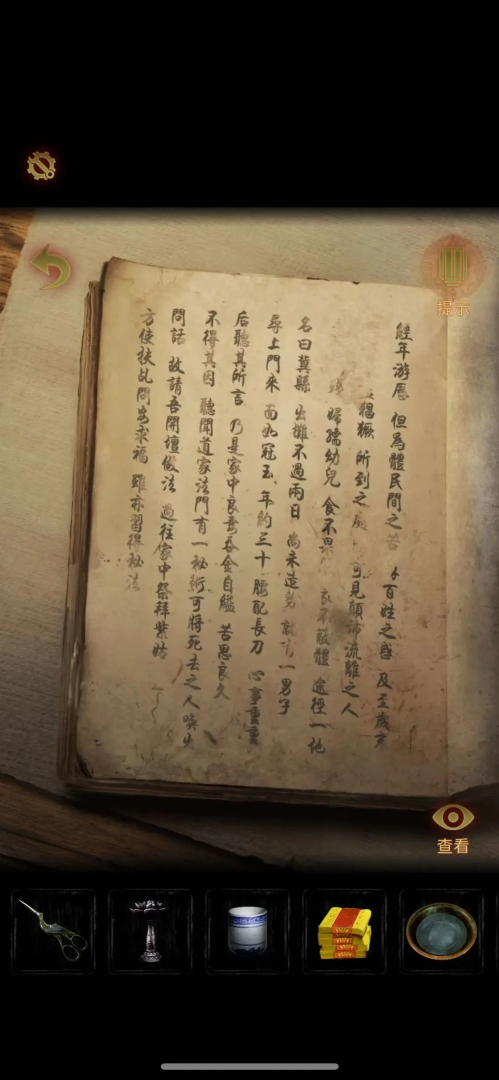 提示
經年游歷 但爲體民間之苦 百姓之惑 及至歲
猖獗 所到之處 可見顛沛流離之人
婦孺幼兒 食不果 衣不蔽體 途徑一地
名曰冀縣 出攤不過兩日 尚未造勢 一男子
尋上門來 面如冠玉 年約三十 腰配長刀 心事重重
后聽其所言 乃是家中良妻吞金自縊 苦思良久
不得其因 聽聞道家法門有一秘術可將死去之人喚出
問話 故請吾開壇做法 過往家中祭拜紫姑
方使扶乩問安求福 雖亦習得秘法
查看